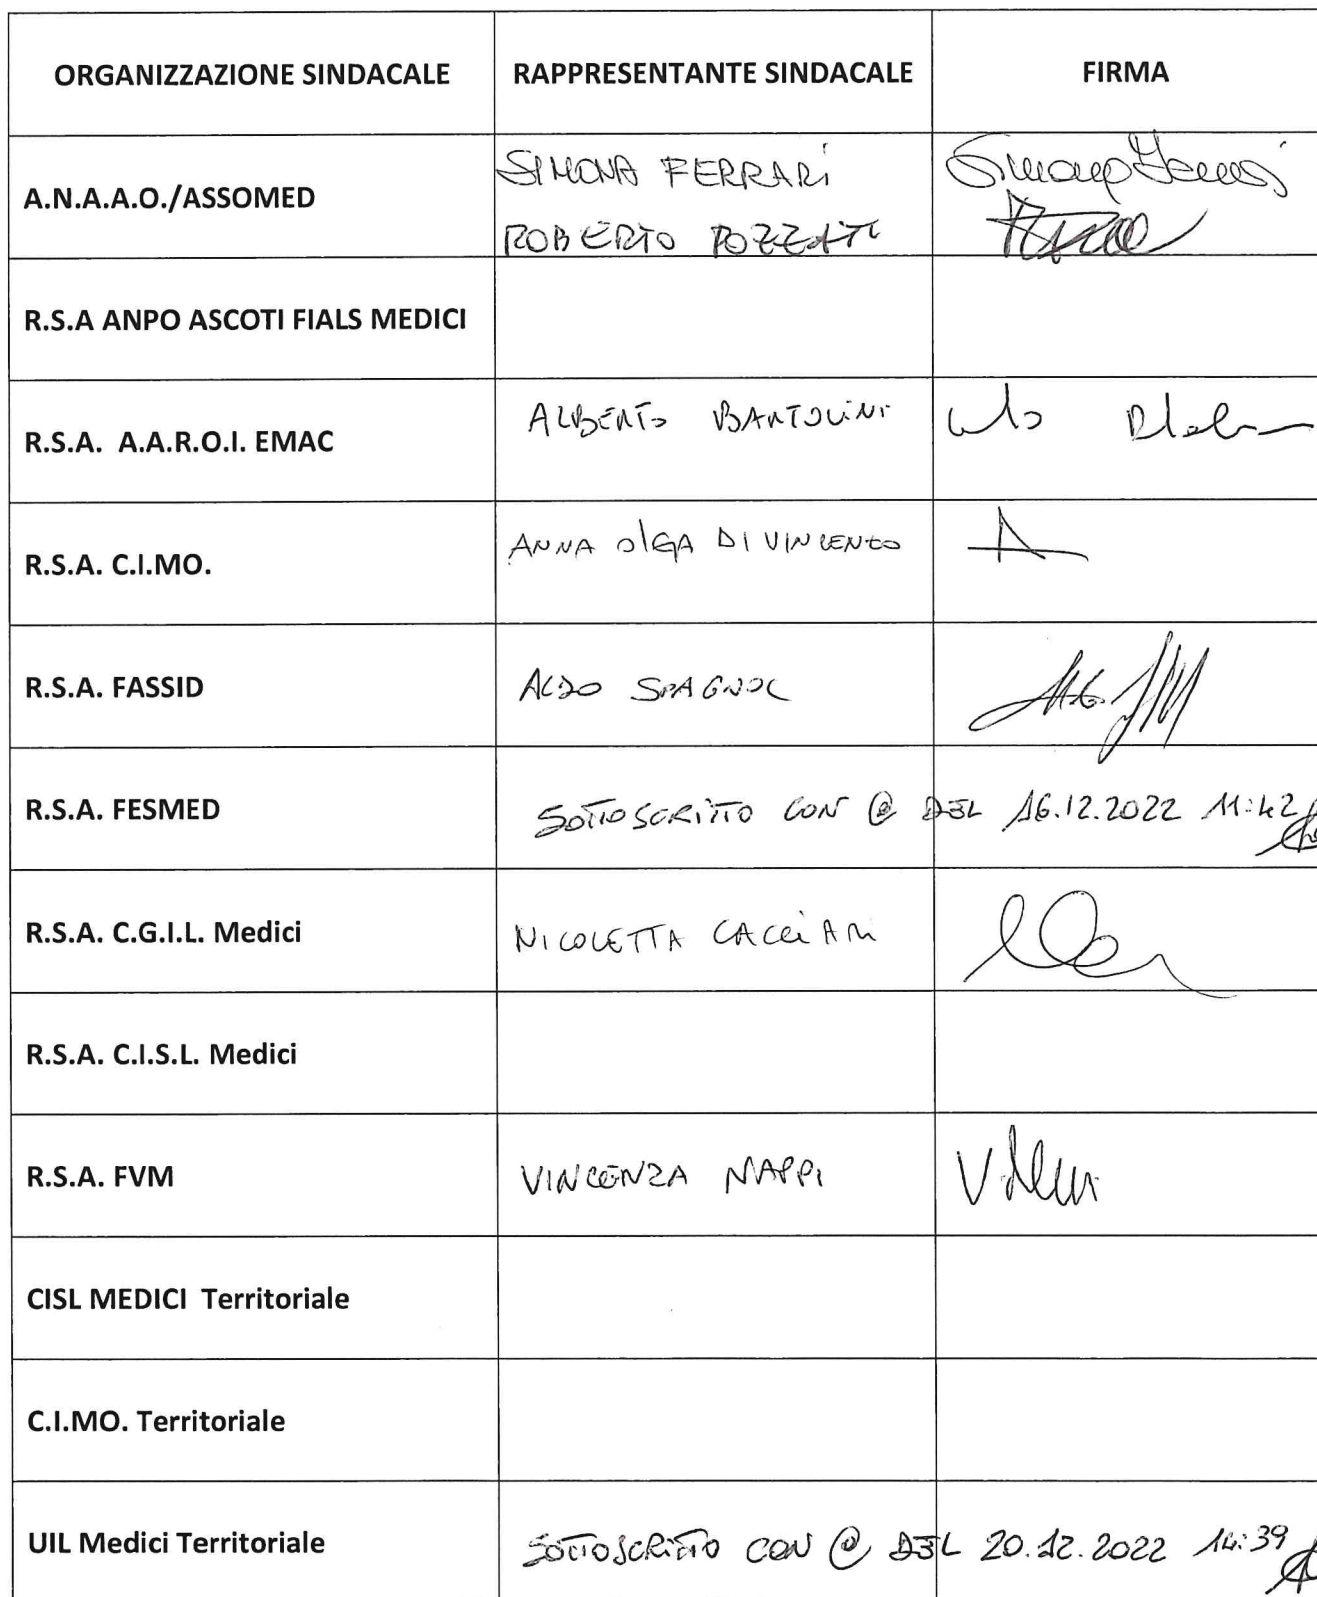 ORGANIZZAZIONE SINDACALE RAPPRESENTANTE SINDACALE FIRMA
A.N.A.A.O./ASSOMED SIMONA FERRARI Simona Ferrari
ROBERTO POZZATI
R.S.A ANPO ASCOTI FIALS MEDICI
R.S.A. A.A.R.O.I. EMAC ALBERTO BARTOLINI
R.S.A. C.I.MO. ANNA OLGA DI VINCENZO
R.S.A. FASSID ALDO SPAGNOL
R.S.A. FESMED SOTTOSCRITTO CON @ DEL 16.12.2022 11:42
R.S.A. C.G.I.L. Medici NICOLETTA CACCIARI
R.S.A. C.I.S.L. Medici
R.S.A. FVM VINCENZA NAPPI
CISL MEDICI Territoriale
C.I.MO. Territoriale
UIL Medici Territoriale SOTTOSCRITTO CON @ DEL 20.12.2022 14:39